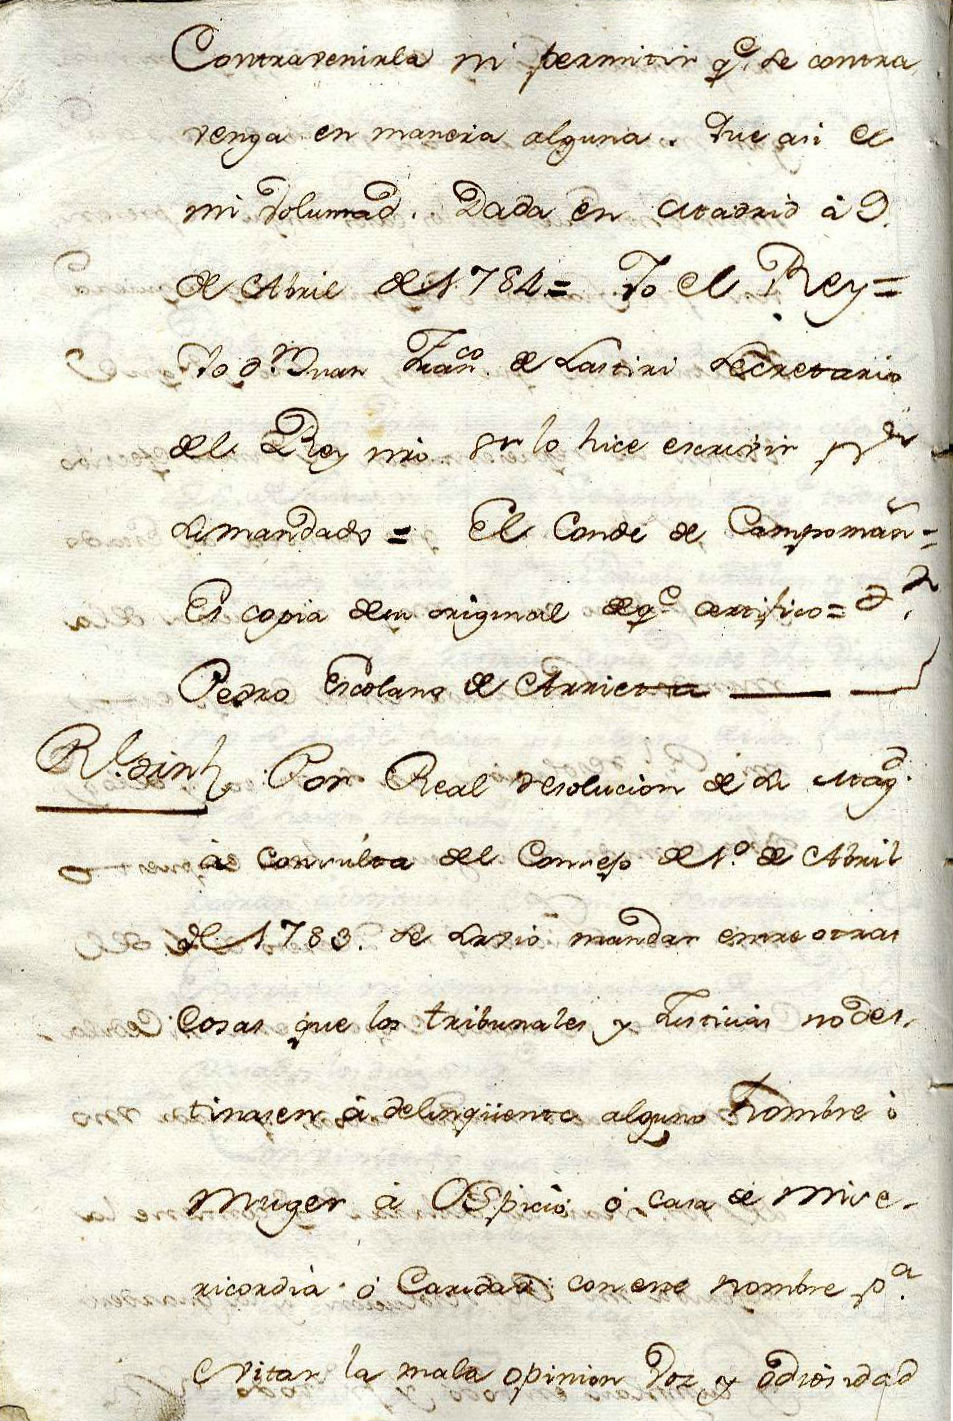 Contravenirla ni permitir q.e se contra
venga en manera alguna. Que asi es
mi Voluntad. Dada en Madrid à 9.
de Abril de 1784 = Yo el Rey =
Yo D.n Juan Fran.co de Lastiri Secretario
del Rey nro. sr lo hice escrivir pr
su mandado = El Conde de Campomán =
Es copia de su original de q.e certifico = D.n
Pedro Escolano de Arrieta
R.l Sin Por Real resolucion de su Mag.d
à consulta del Consejo de 1.o de Abril
de 1783. se sirvió mandar entre otras
cosas que los tribunales y Justicias no des-
tinasen à delinqüente alguno hombre ò
muger à Ospicio ò casa de mise-
ricordia ò Caridad con ese nombre p.a
evitar la mala opinion voz y odiosidad